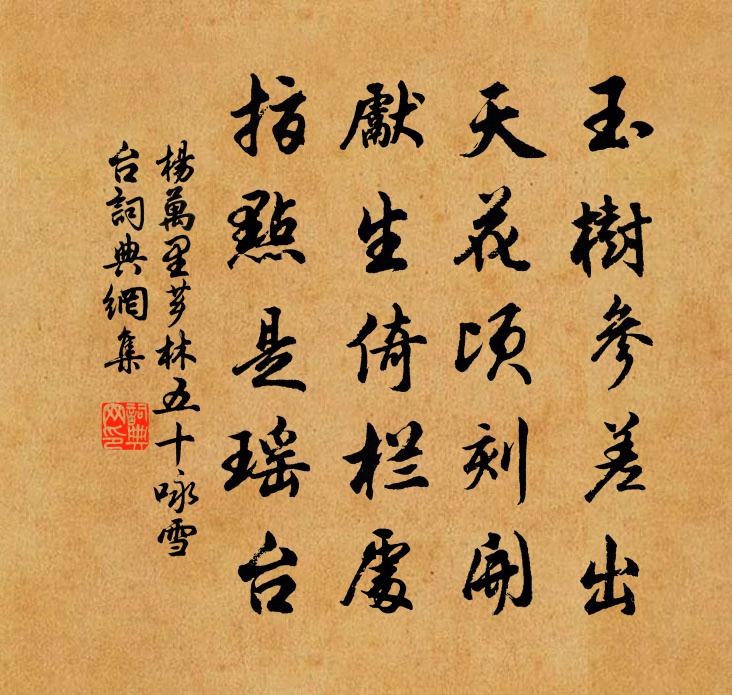 玉樹參差出
天花頃刻開
獻生倚栏處
指點是瑶台
楊萬里芗林五十咏雪
台詞典網集
詞典
网印